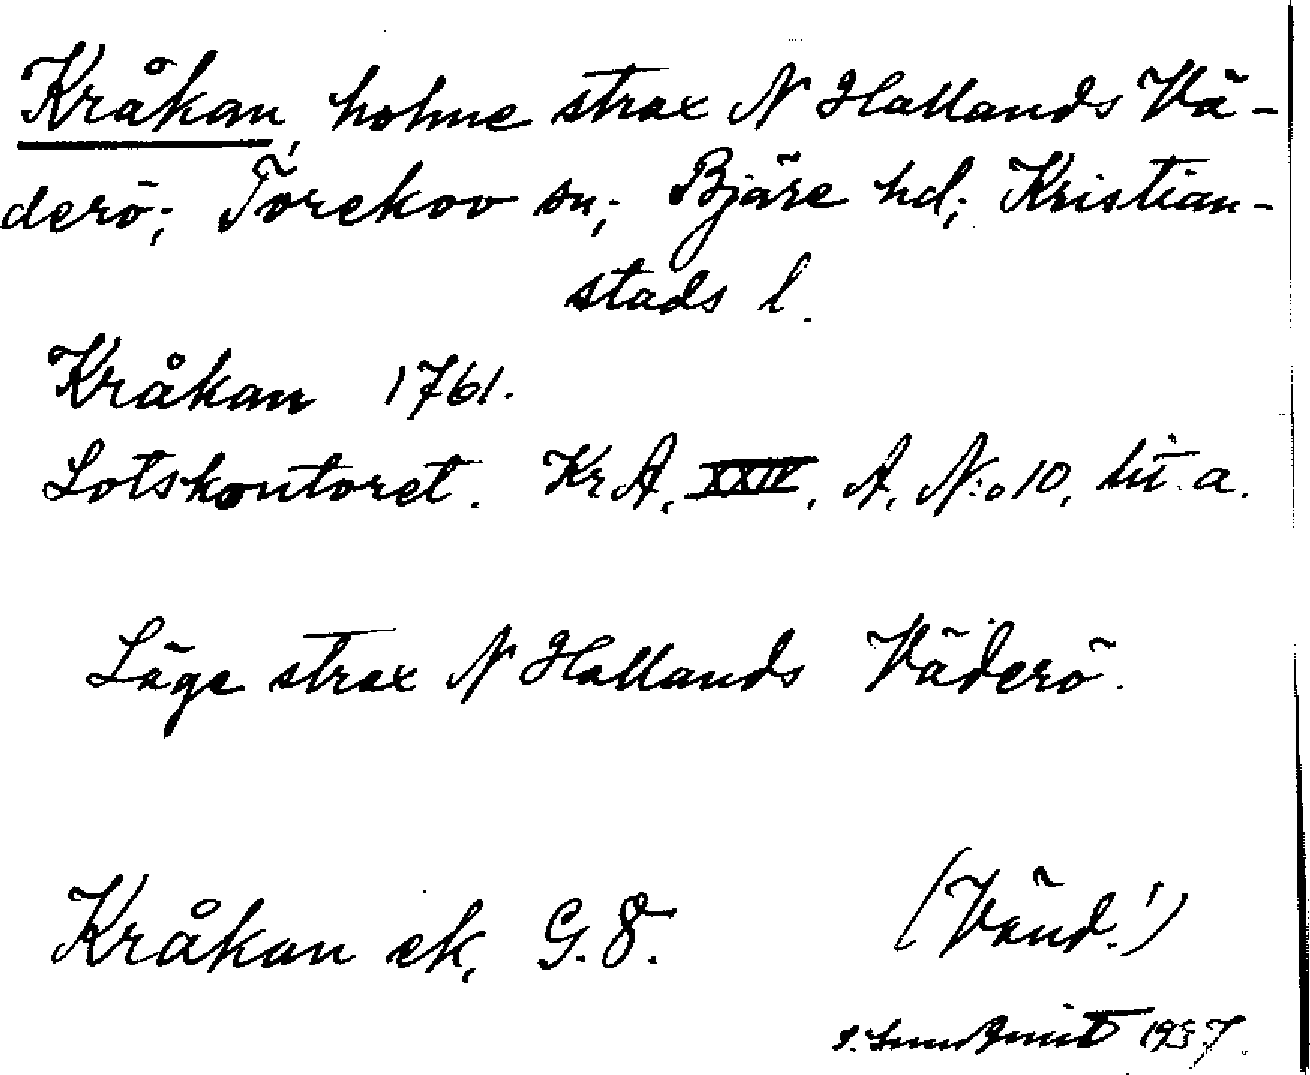 Kråkan, holme strax N Hallands Vä-
derö; Torekov sn; Bjäre hd; Kristian-
stads l.
Kråkan 1761.
Lotskontoret. KrA, XXIV, A, N:o 10, lit. a.
Läge strax N Hallands Väderö.
Kråkan ek, G. 8.
(Vänd!)
1937.